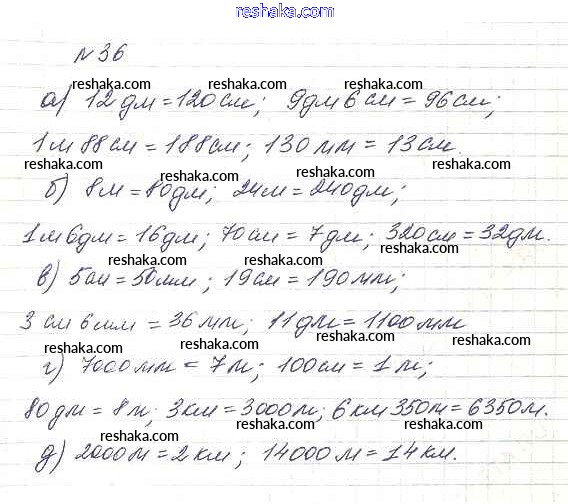 www.reshaka.com
№36
reshaka.com reshaka.com reshaka.com
а) 12 дм = 120 см; 9 дм 6 см = 96 см;
1 м 88 см = 188 см; 130 мм = 13 см.
reshaka.com reshaka.com reshaka.com
б) 8 м = 80 дм; 24 м = 240 дм;
1 м 6 дм = 16 дм; 70 см = 7 дм; 320 см = 32 дм.
reshaka.com reshaka.com reshaka.com
в) 5 см = 50 мм; 19 см = 190 мм;
3 см 6 мм = 36 мм; 11 дм = 1100 мм
reshaka.com reshaka.com reshaka.com
г) 7000 мм = 7 м; 100 см = 1 м;
80 дм = 8 м; 3 км = 3000 м; 6 км 350 м = 6350 м.
reshaka.com reshaka.com reshaka.com
д) 2000 м = 2 км; 14000 м = 14 км.
reshaka.com reshaka.com reshaka.com